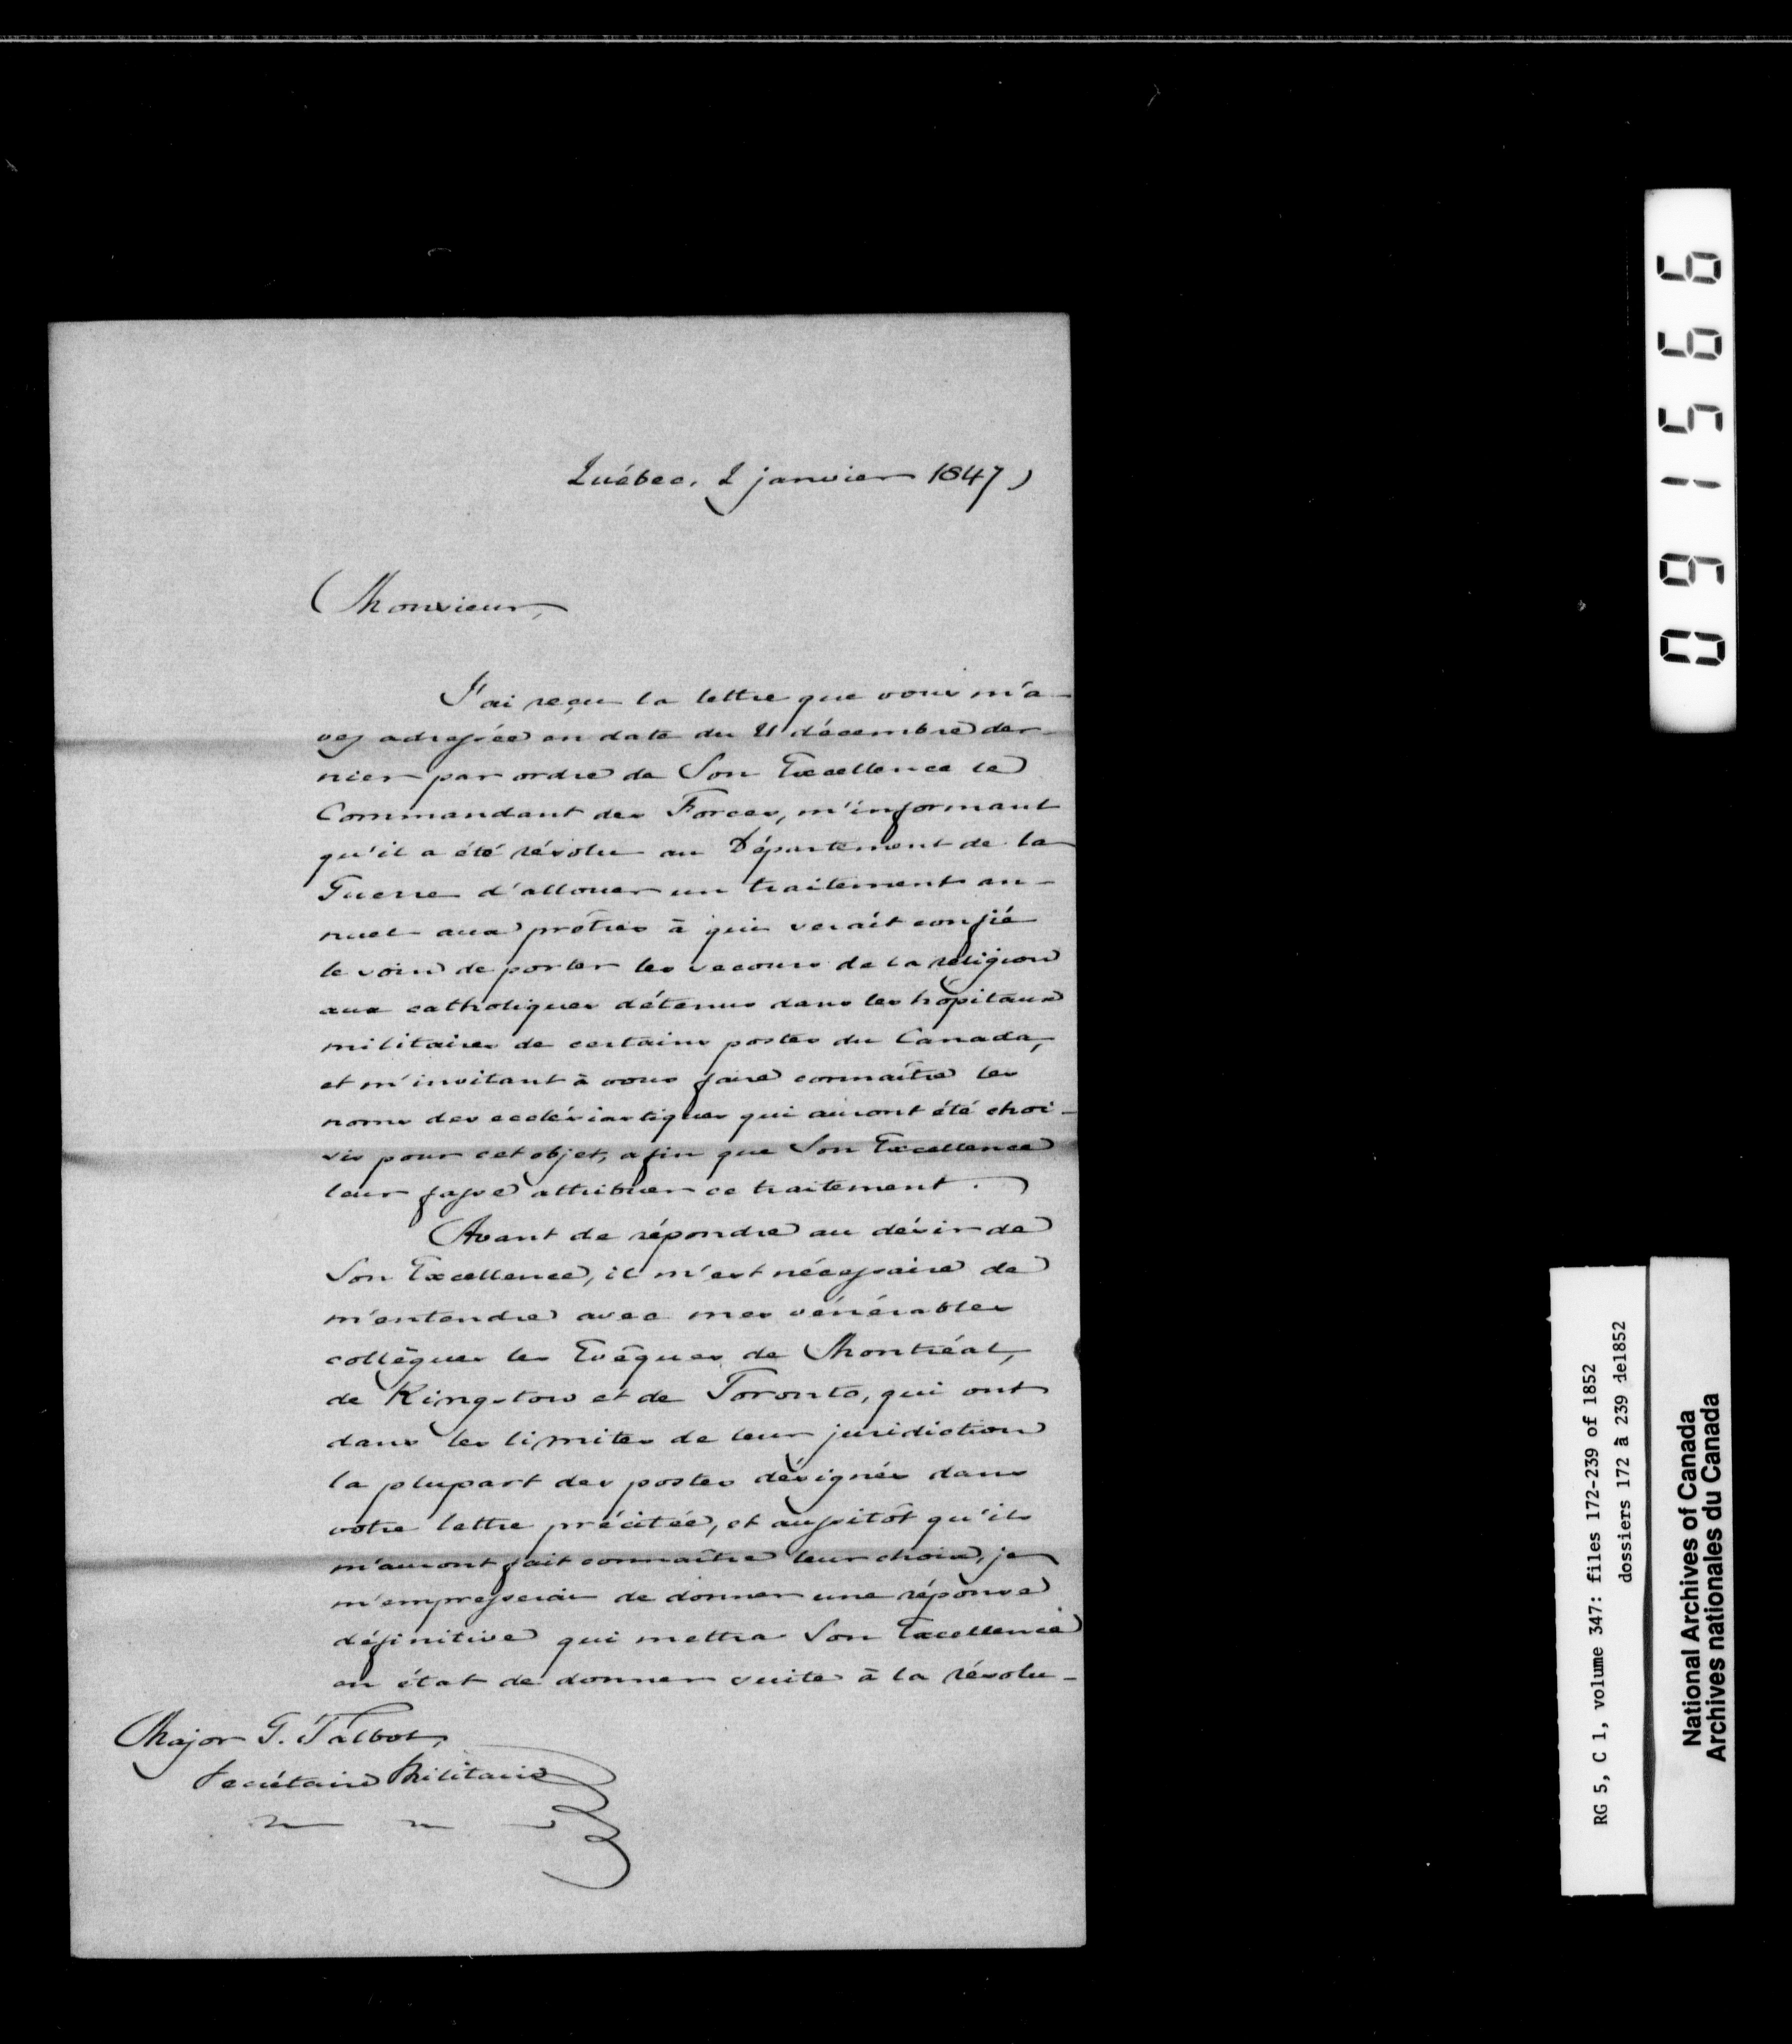 Québec, 2 janvier 1847
Monsieur,
J'ai reçu la lettre que vous m'a-
vez adressée en date du 21 décembre der-
nier par ordre de Son Excellence le
Commandant des Forces, m'informant
qu'il a été résolu au Département de la
Guerre d'allouer un traitement an-
nuel aux prêtres à qui serait confié
le soin de porter les secours de la religion
aux catholiques détenus dans les hôpitaux
militaires de certains postes du Canada,
et m'invitant à vous faire connaître les
noms des ecclésiastiques qui auront été choi-
sis pour cet objet, afin que Son Excellence
leur fasse attribuer ce traitement.
Avant de répondre au désir de
Son Excellence, il m'est nécessaire de
m'entendre avec mes vénérables
collègues les Evêques de Montréal,
de Kingston et de Toronto, qui ont
dans les limites de leur juridiction
la plupart des postes désignés dans
votre lettre précitée, et aussitôt qu'ils
m'auront fait connaître leur choix, je
m'empresserai de donner une réponse
définitive qui mettra Son Excellence
en état de donner suite à la résolu-
Major G. Talbot,
Secrétaire Militaire
091566
RG 5, C 1, volume 347: files 172-239 of 1852
dossiers 172 à 239 de1852
National Archives of Canada
Archives nationales du Canada